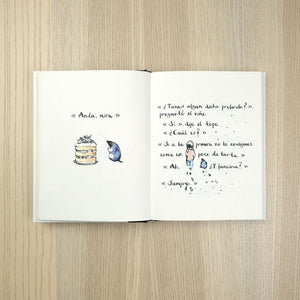 « Anda, mira »
« ¿Tienes algún dicho preferido? »,
preguntó el niño.
« Sí », dijo el topo.
« ¿Cuál es? »
« Si a la primera no lo consigues
come un poco de tarta. »
« Ah. ¿Y funciona? »
« Siempre. »